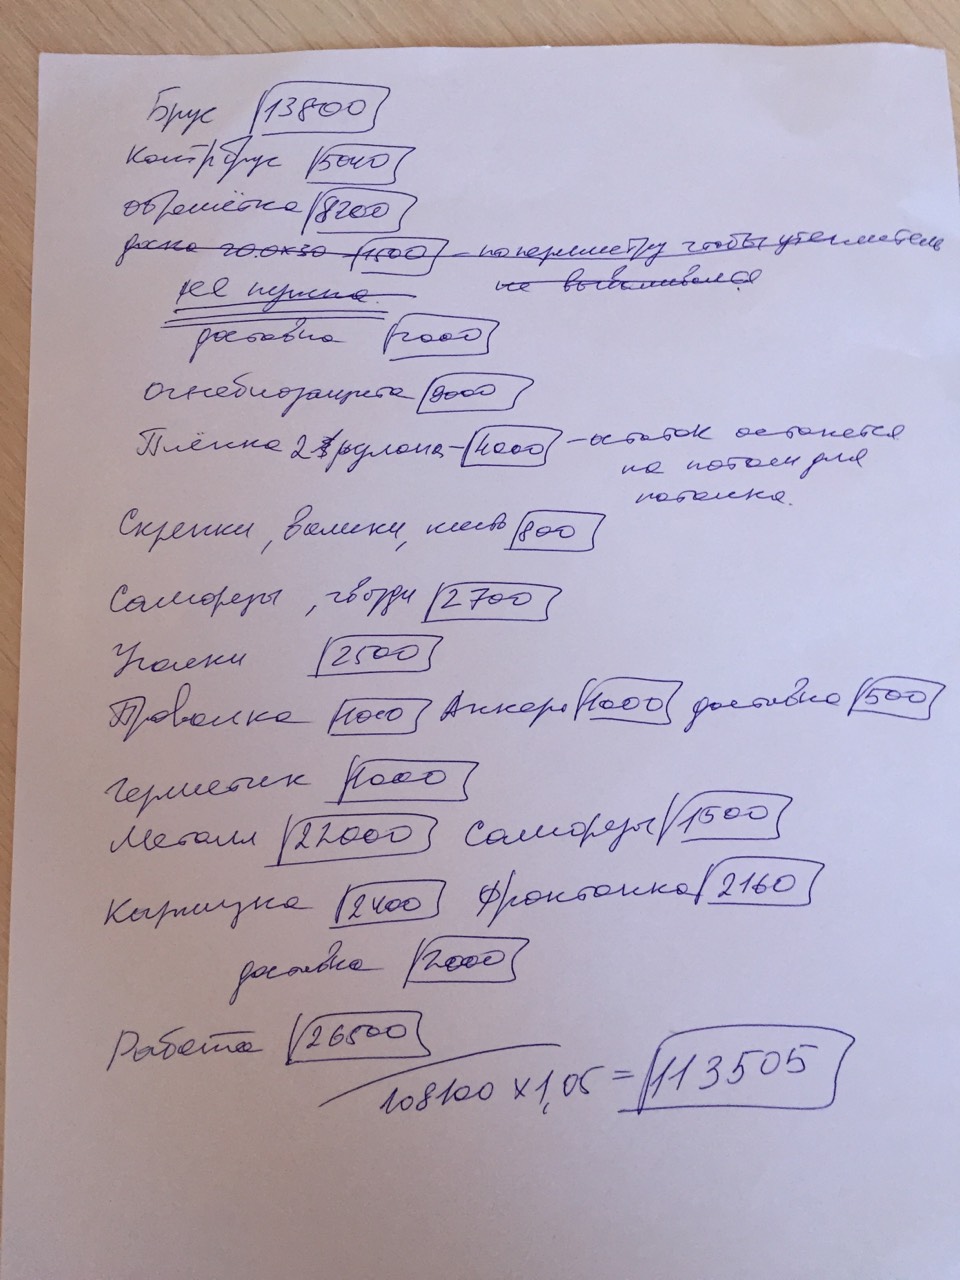 Брус 13800
Контрбрус 5040
обрешётка 8200
доска 200х50 1500 - по периметру чтобы утеплитель
не вываливался
не нужна.
доставка 2000
Огнебиозащита 9000
Плёнка 2 рулона - 4000 - остаток останется
на потом для
потолка.
Скрепки, валики, кисть 800
Саморезы, гвозди 2700
Уголки 2500
Проволка 1000 Анкера 1000 доставка 500
Герметик 1000
Металл 22000 Саморезы 1500
Карнизка 2400 Фронтонка 2160
доставка 2000
Работа 26500
108100 х 1,05 = 113505